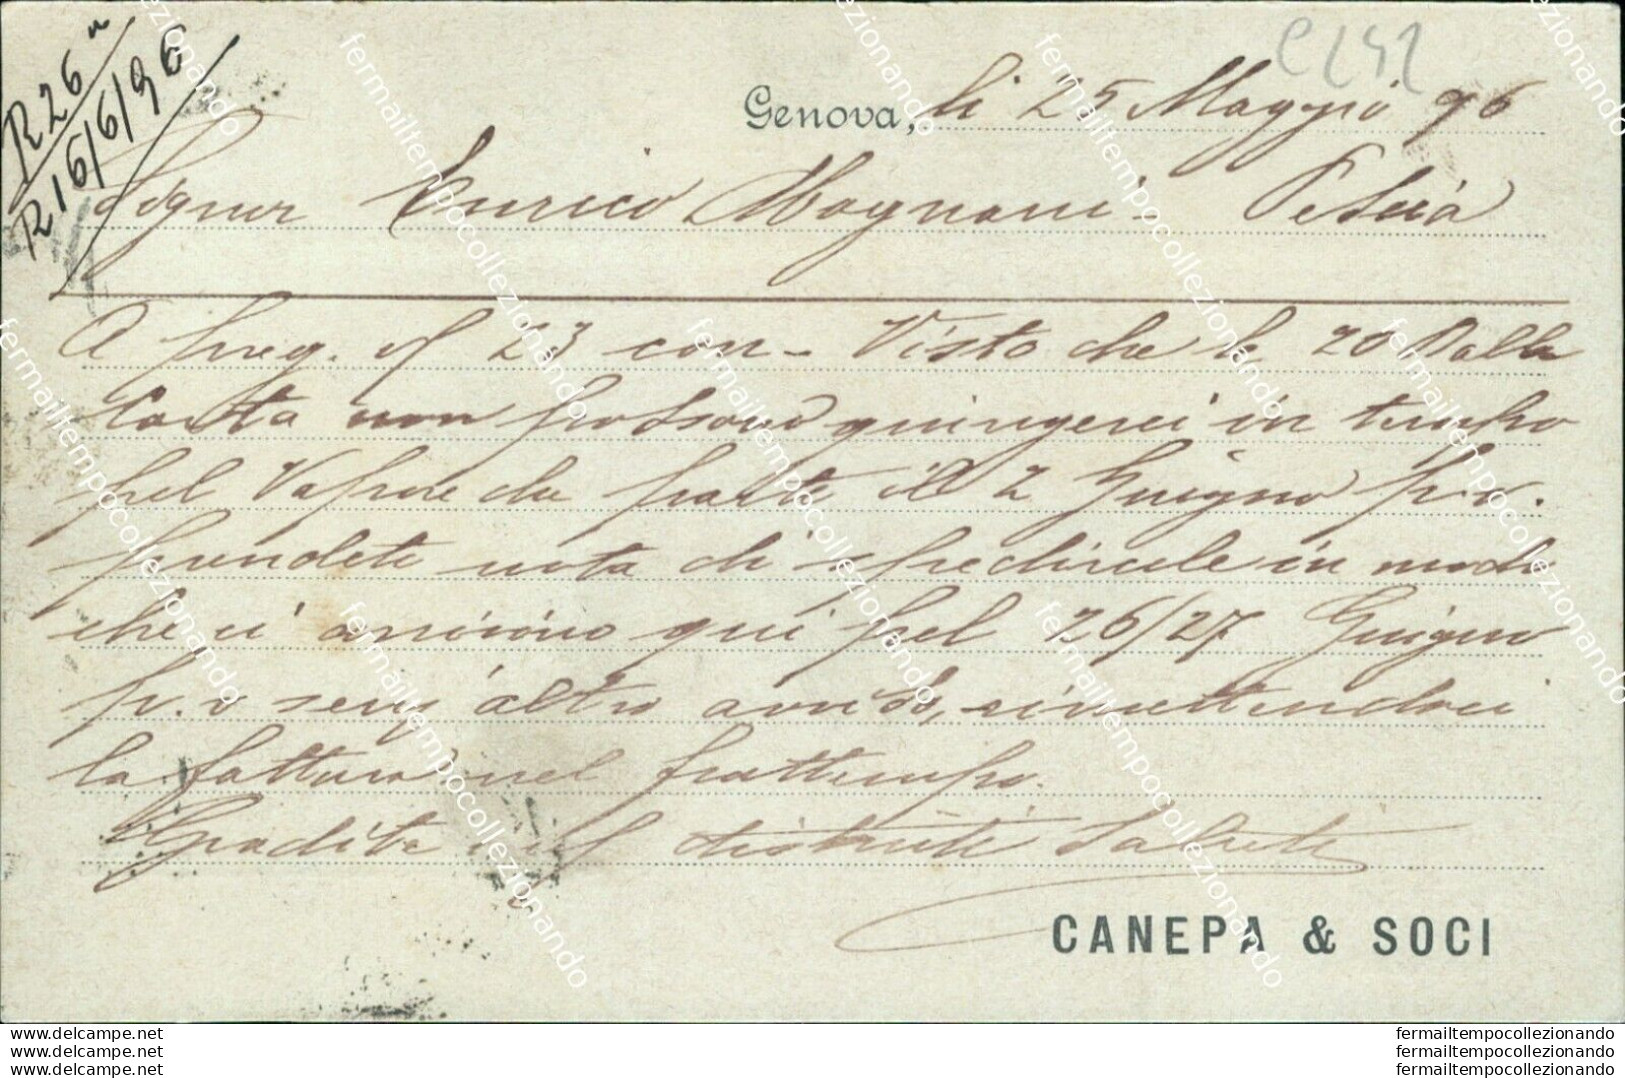 R 26 n
R 16/6/96
C252
Genova, li 25 Maggio 96
Signor Enrico Magnani Pescia
A preg. of 23 corr. Visto che le 20 Balle
Carta non possono giungerci in tempo
pel Vapore che parte il 2 Giugno p.v.
prendete nota di spedircele in modo
che ci arrivino qui pel 26/27 Giugno
p.v senz'altro avviso, rimettendoci
la fattura nel frattempo.
Gradite distinti Saluti
CANEPA & SOCI
www.delcampe.net
www.delcampe.net
www.delcampe.net
fermailtempocollezionando
fermailtempocollezionando
fermailtempocollezionando